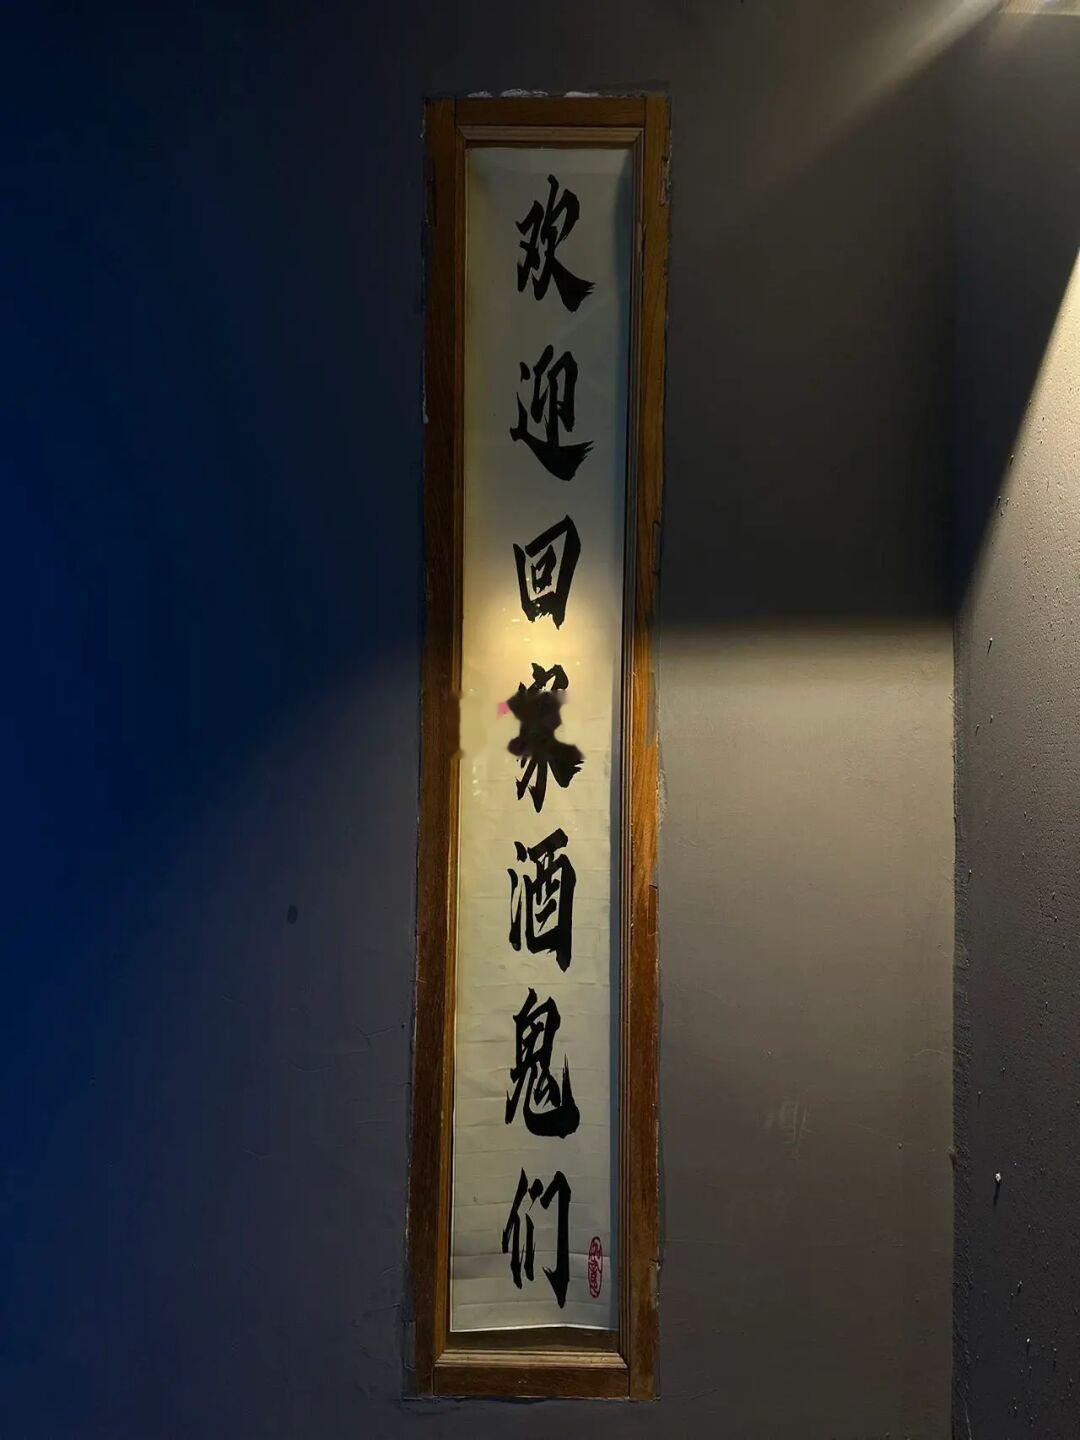 欢迎回家酒鬼们